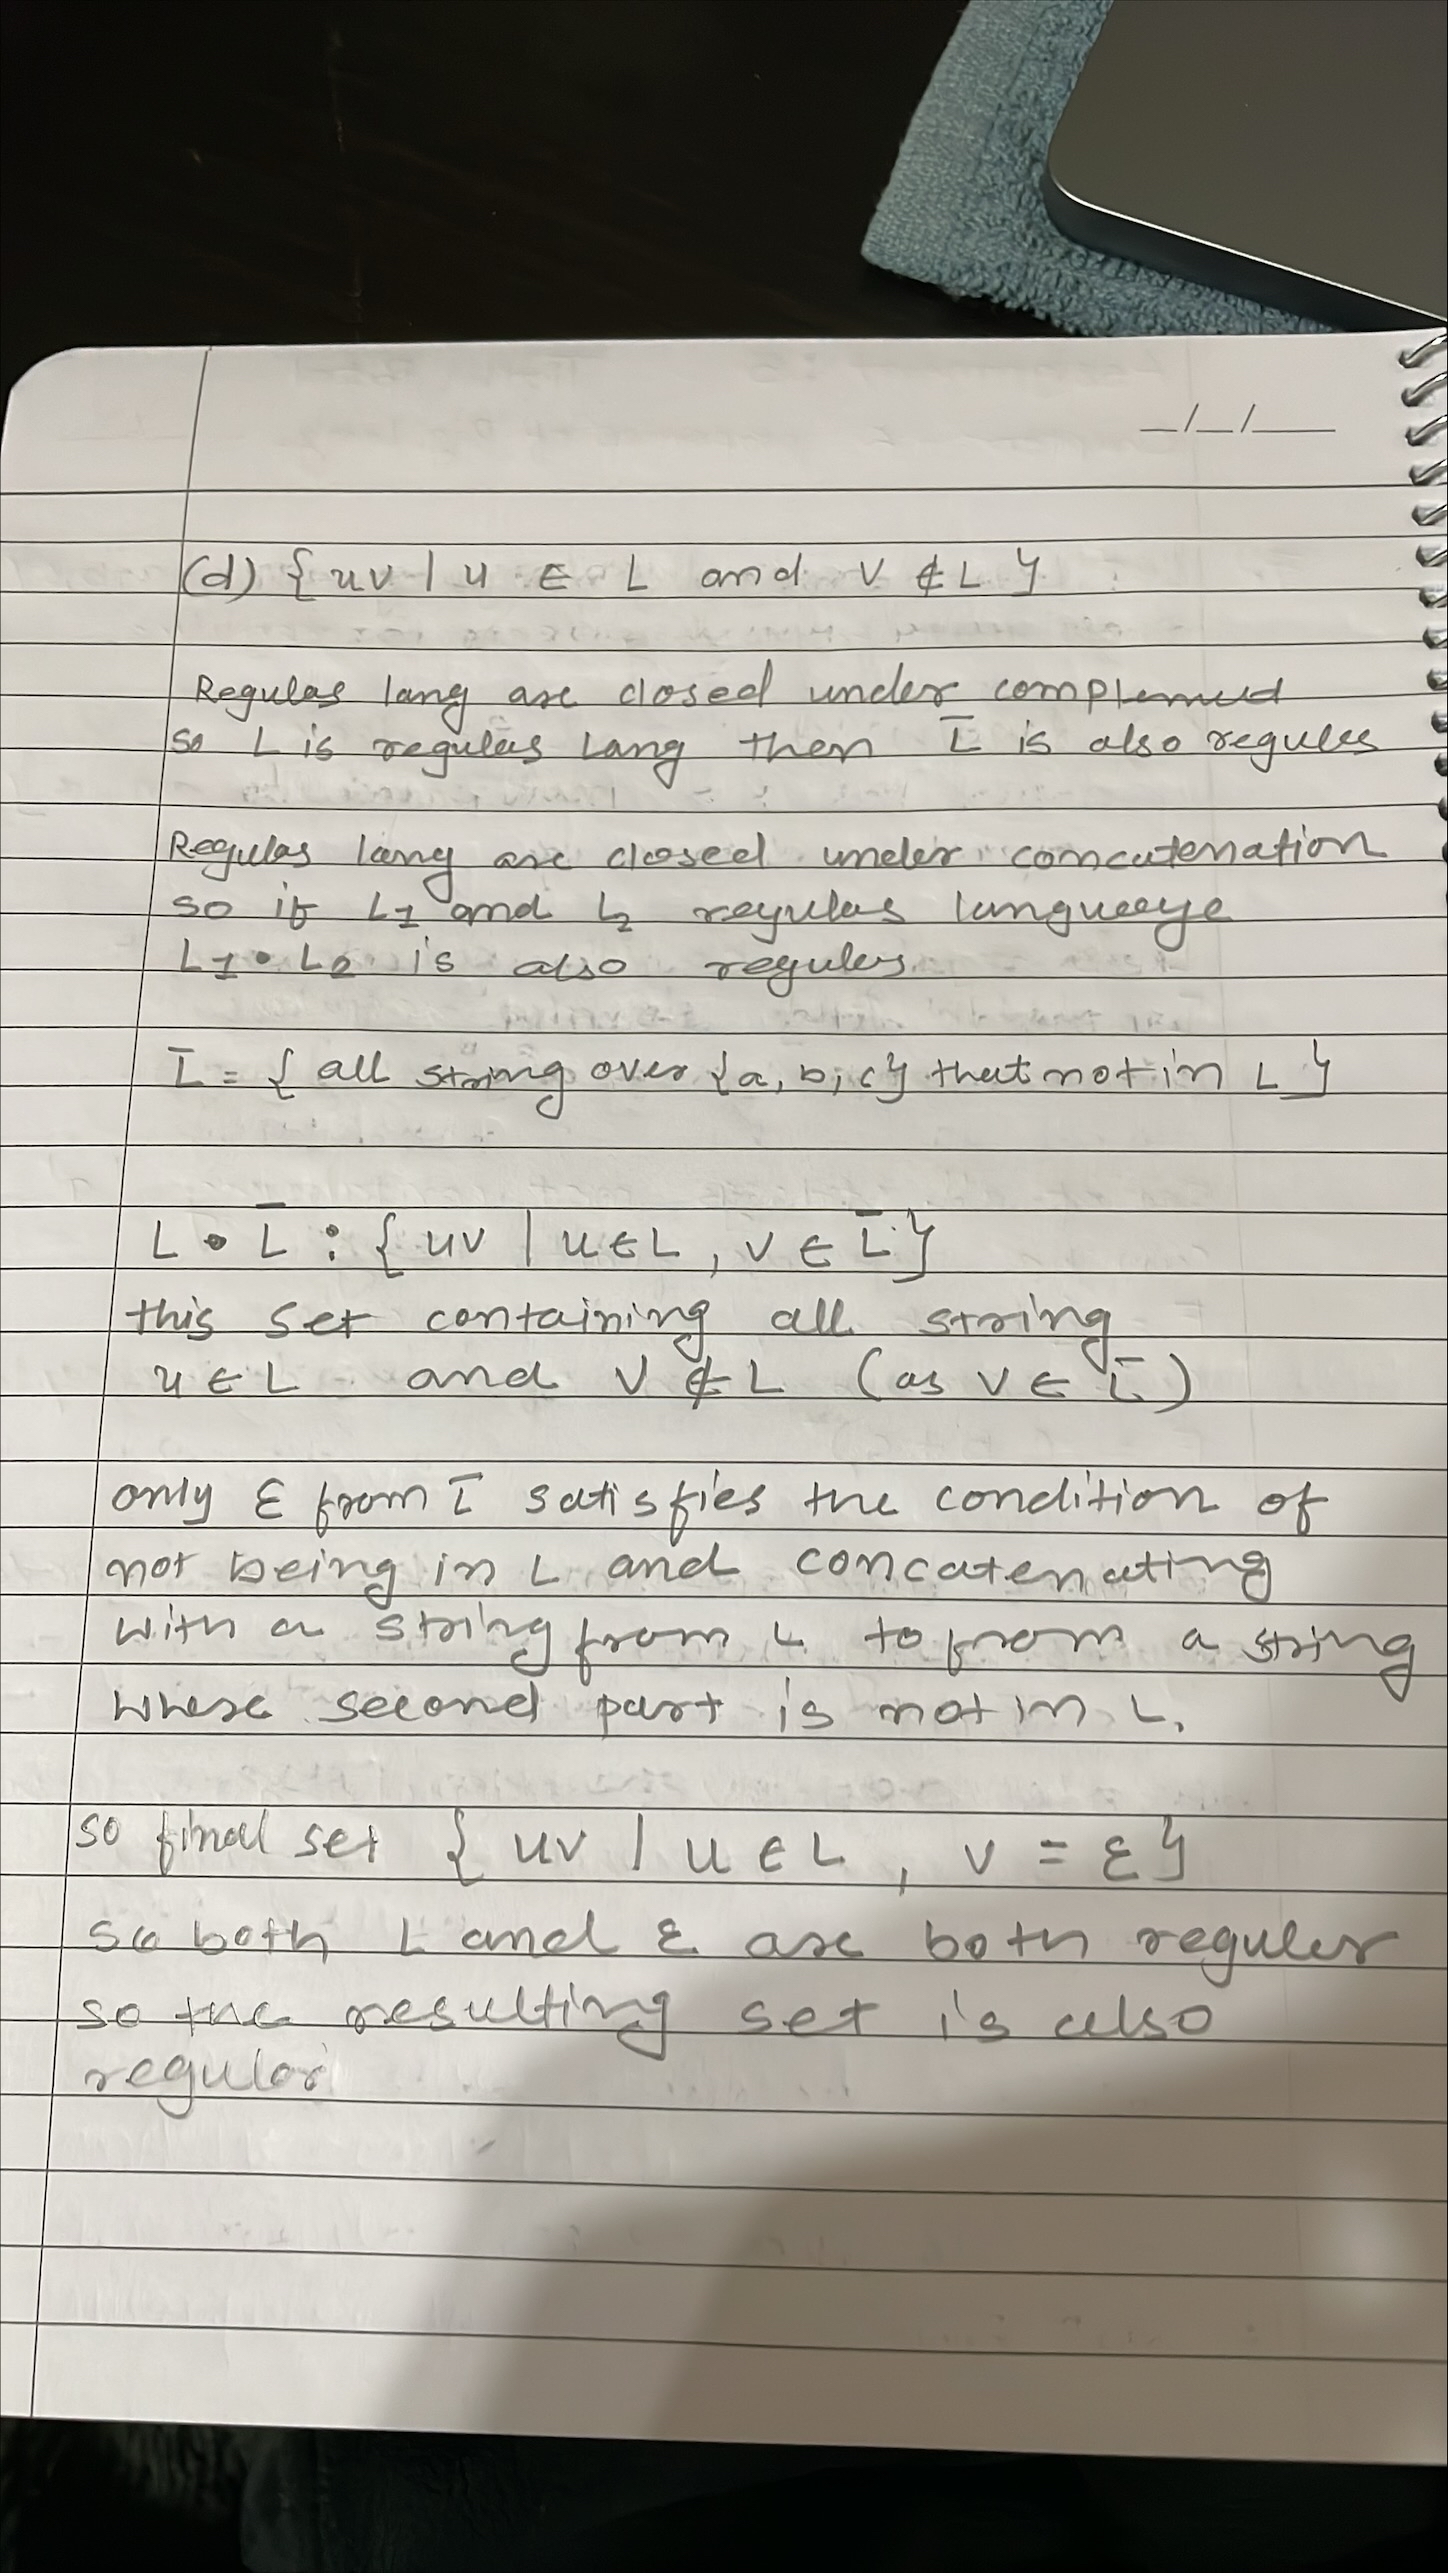 _/_/___
(d) { uv | u ∈ L and v ∉ L }
Regular lang are closed under complemud
so L is regular Lang then L̅ is also regular
Regular lang are closed under concatenation
so if L1 and L2 regular language
L1 • L2 is also regular
L̅ = { all string over {a, b, c} that not in L }
L • L̅ : { uv | u ∈ L , v ∈ L̅ }
this set containing all string
u ∈ L and v ∉ L (as v ∈ L̅)
only ε from L̅ satisfies the condition of
not being in L and concatenating
with a string from L to from a string
whese second part is not in L.
so final set { uv | u ∈ L , v = ε }
so both L and ε are both reguler
so the resulting set is also
regular